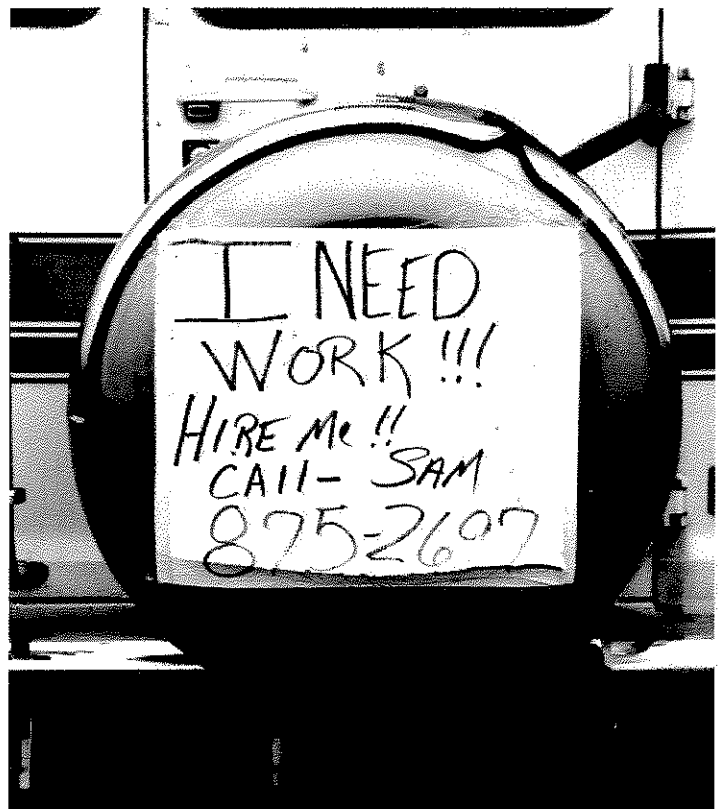 I NEED
WORK !!!
HIRE Me !!
CAll- SAM
875-2697